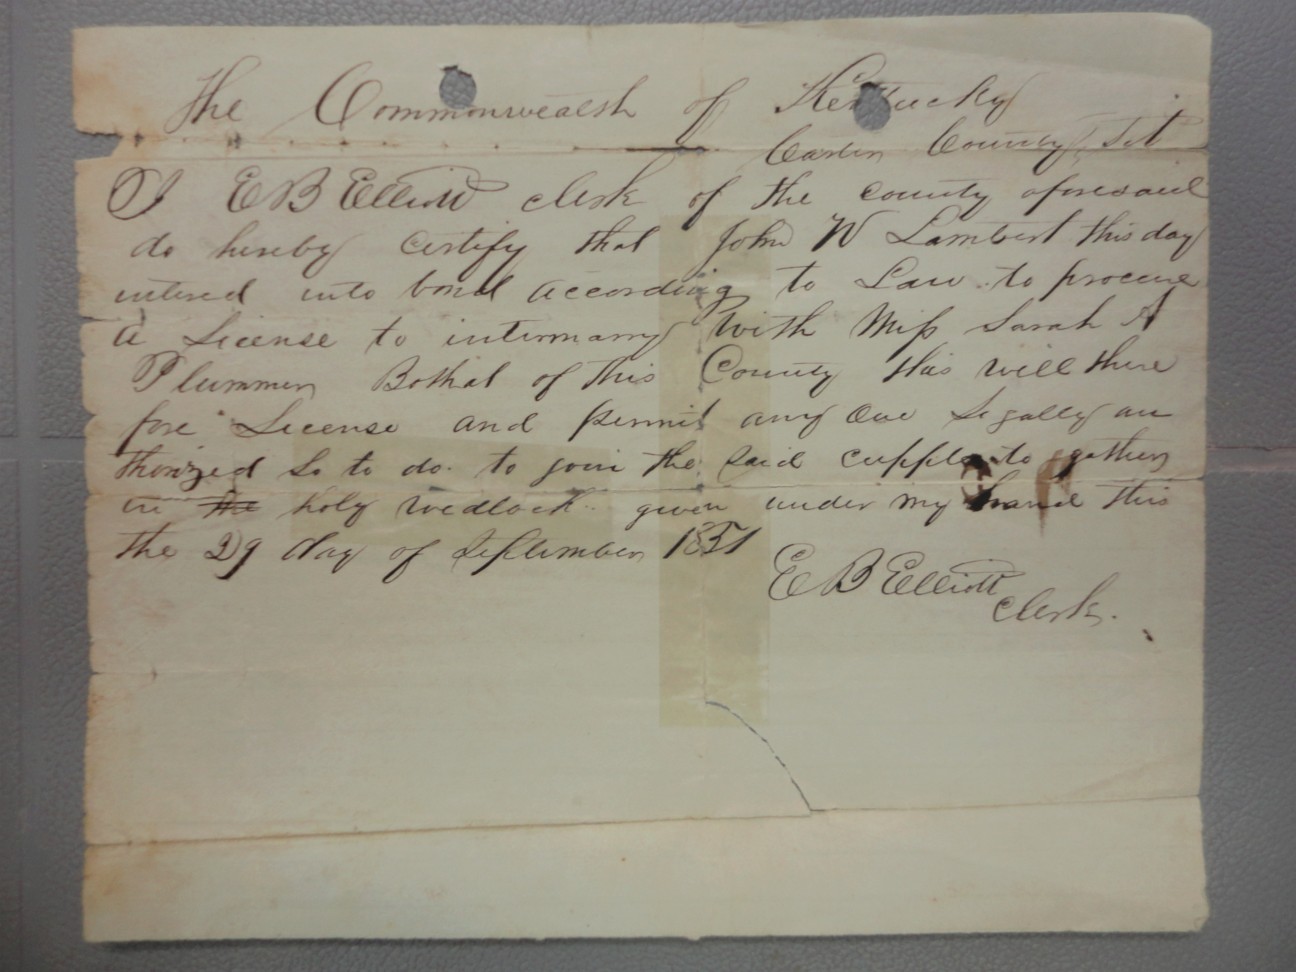 The Commonwealth of Kentucky
Carter County Sct
I E B Elliott clerk of the county aforesaid
do hereby certify that John W Lambert this day
intered into bond according to Law to procure
a License to intermarry with Miss Sarah A
Plummer Bothat of this County this will there
fore License and permit any one Legally au
thorized so to do to join the said cupple to gather
in the holy wedlock given under my hand this
the 29 day of September 1851
E B Elliott
Clerk.